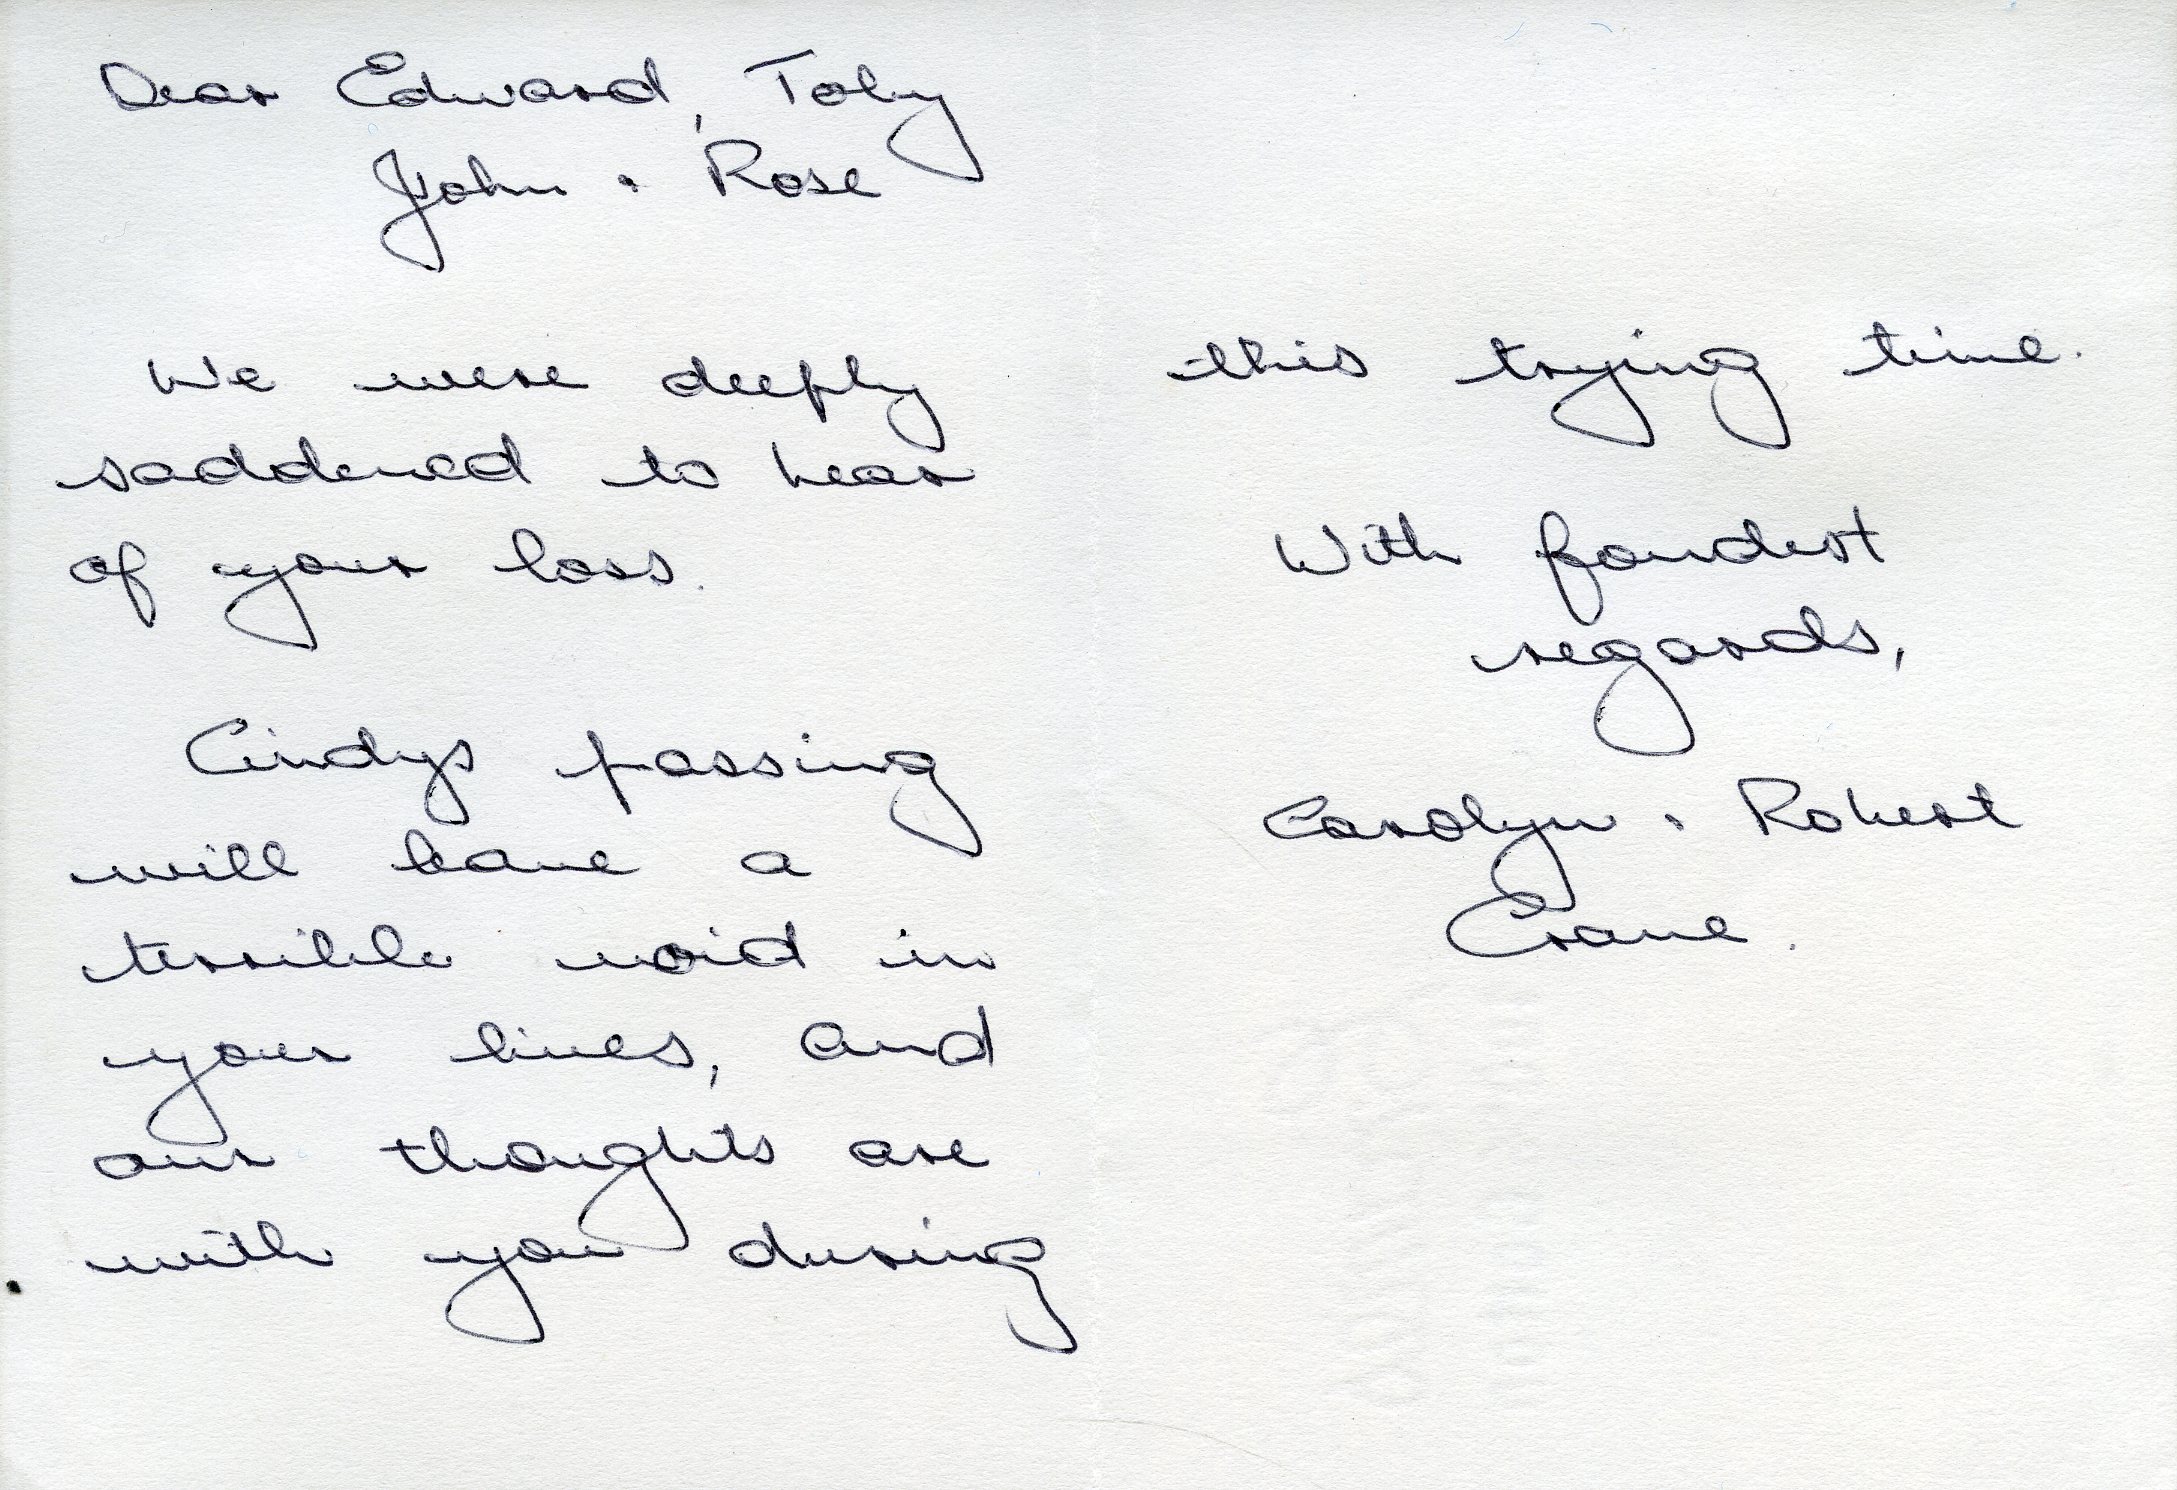 Dear Edward, Toby
John . Rose
We were deeply
saddened to hear
of your loss.
Cindys passing
will leave a
terrible void in
your lives, and
our thoughts are
with you during
this trying time.
With fondest
regards,
Carolyn . Robert
Crane.